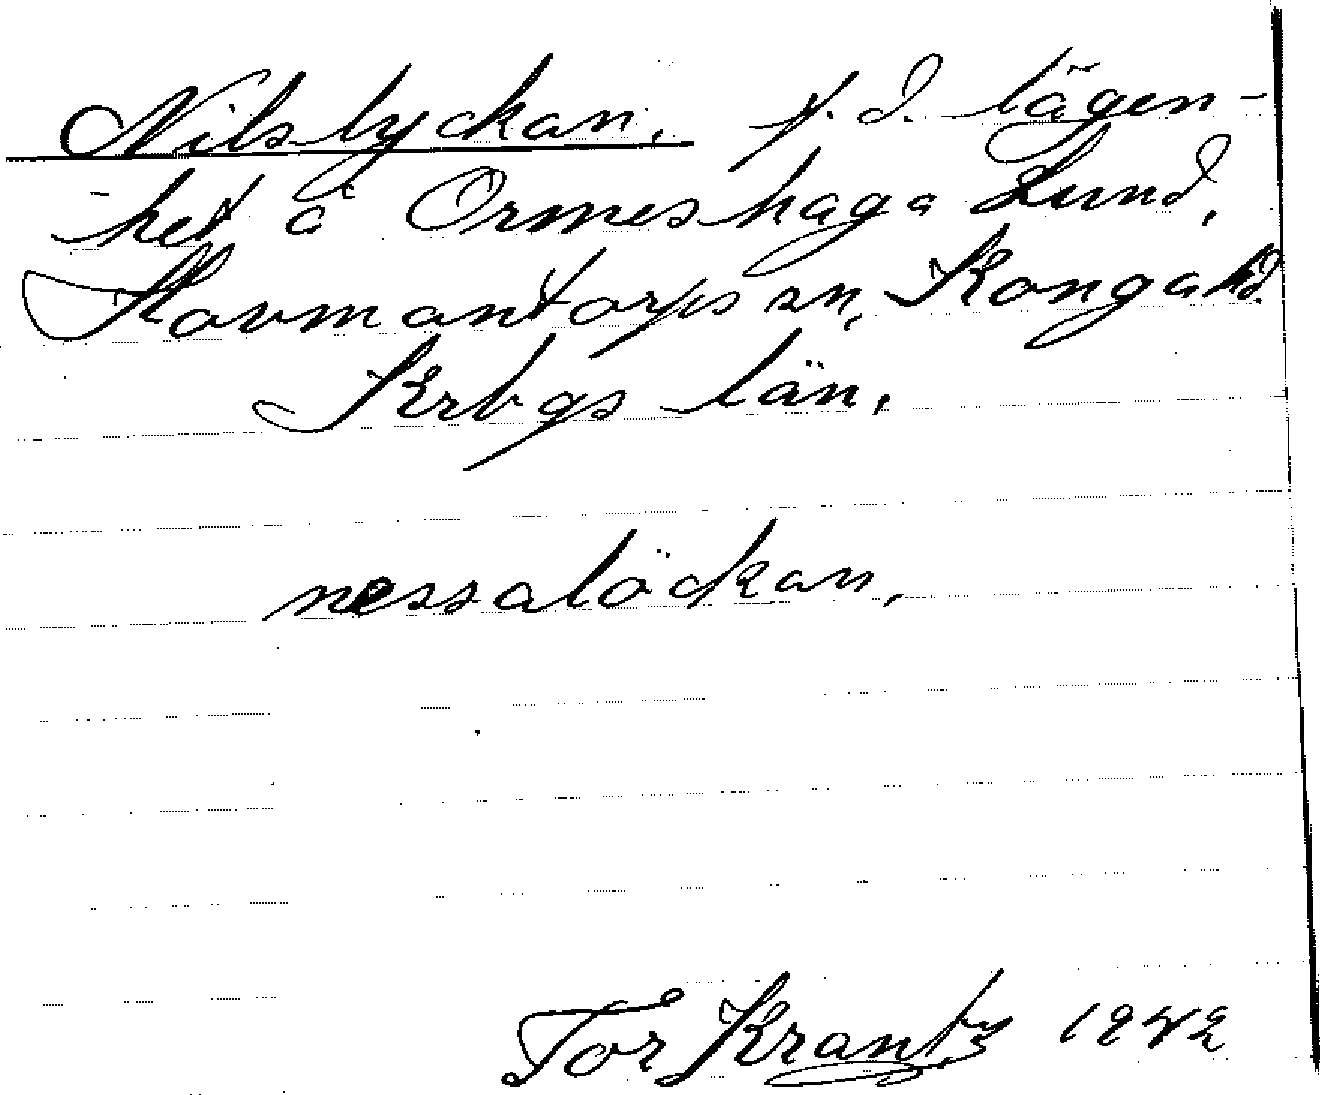 Nilslyckan. f. d. lägen-
-het å Ormeshaga Lund,
Hovmantorps sn, Konga hd
Krbgs län.
nessalöckan,
Tor Krantz 1942